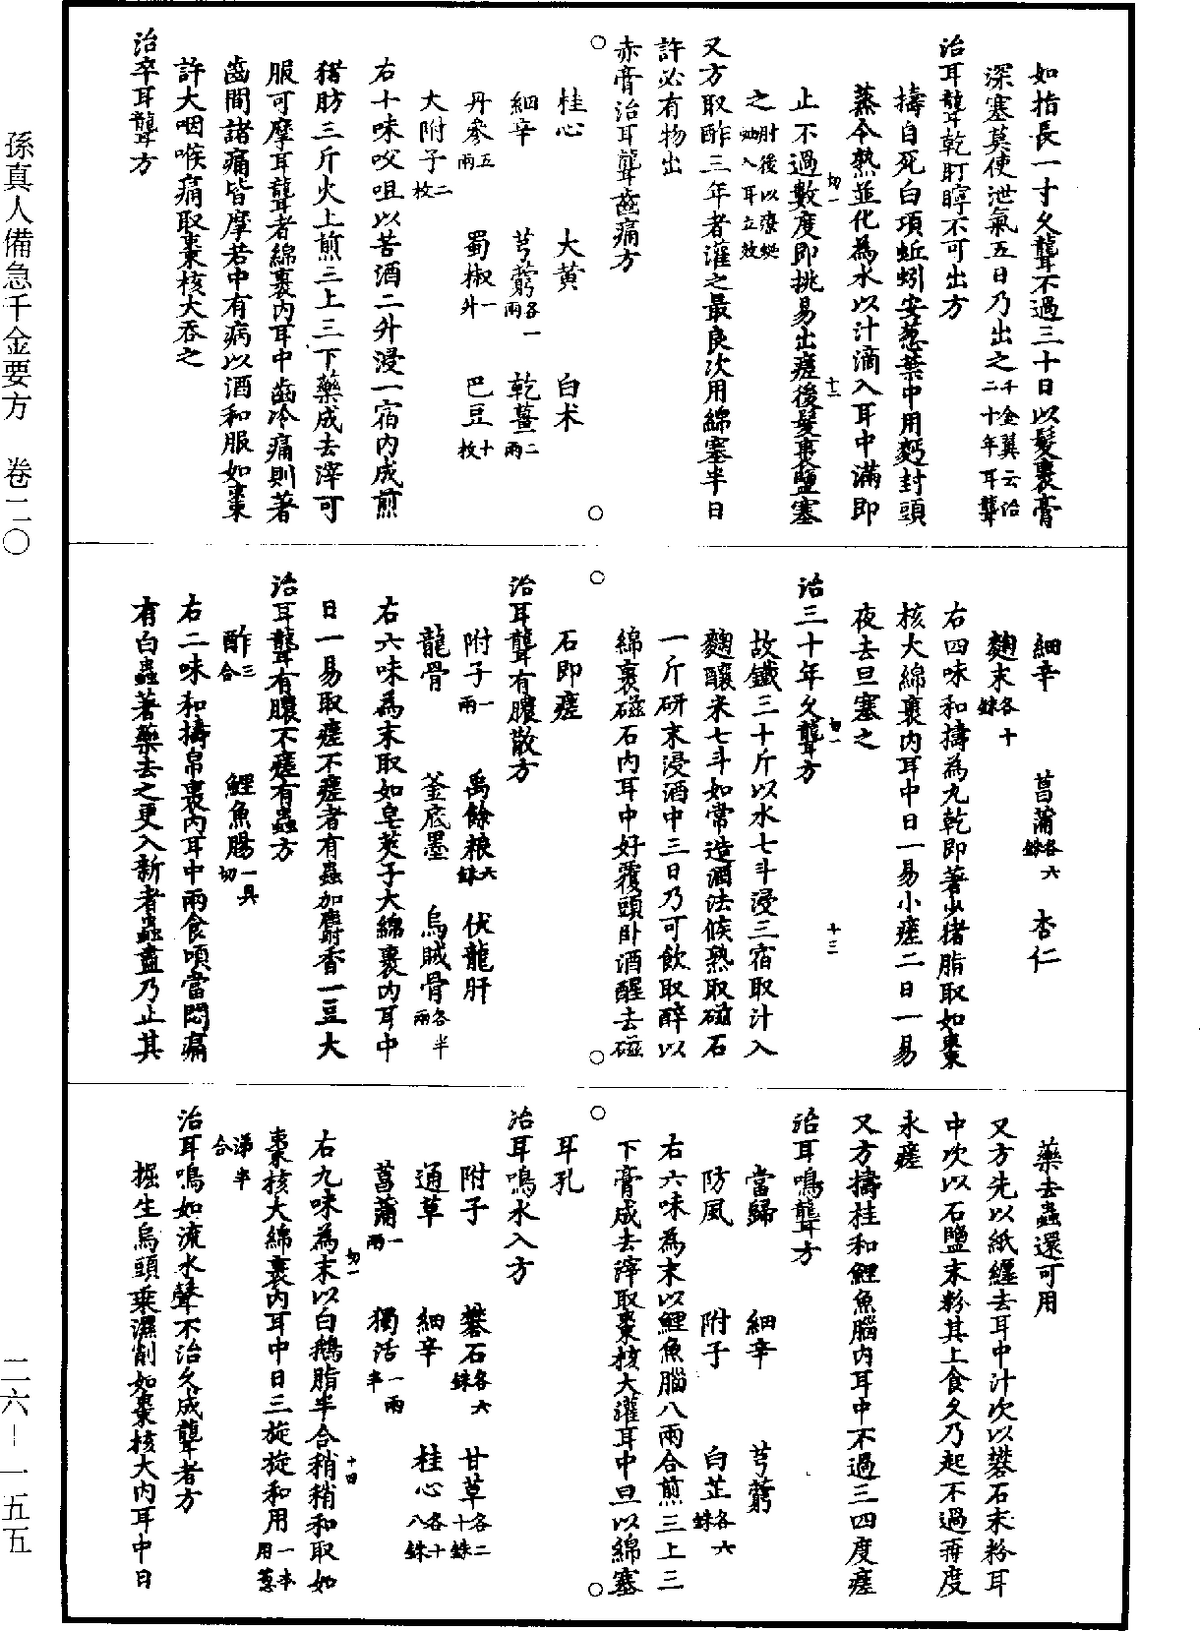 孫真人備急千金要方　卷二〇
二六－一五五
如指長一寸久聾不過三十日以髮裹膏
深塞莫使泄氣五日乃出之千金翼云治二十年耳聾
治耳聾乾耵聹不可出方
擣自死白項蚯蚓安葱葉中用麪封頭
蒸令熟並化為水以汁滴入耳中滿即
止不過數度即挑易出瘥後髮裹鹽塞
之肘後以療蚰蜒入耳立效
又方取酢三年者灌之最良次用綿塞半日
許必有物出
赤膏治耳聾齒痛方
桂心　大黃　白术
細辛　芎藭各一兩　乾薑二兩
丹參五兩　蜀椒一升　巴豆十枚
大附子二枚
右十味㕮咀以苦酒二升浸一宿內成煎
猪肪三斤火上煎三上三下藥成去滓可
服可摩耳聾者綿裹內耳中齒冷痛則著
齒間諸痛皆摩若中有病以酒和服如棗
許大咽喉痛取棗核大吞之
治卒耳聾方
細辛　菖蒲各六銖　杏仁
麴末各十銖
右四味和擣為丸乾即著少猪脂取如棗
核大綿裹內耳中日一易小瘥二日一易
夜去旦塞之
治三十年久聾方
故鐵三十斤以水七斗浸三宿取汁入
麴釀米七斗如常造酒法候熟取磁石
一斤研末浸酒中三日乃可飲取醉以
綿裹磁石內耳中好覆頭臥酒醒去磁
石即瘥
治耳聾有膿散方
附子一兩　禹餘粮六銖　伏龍肝
龍骨　釜底墨　烏賊骨各半兩
右六味為末取如皂莢子大綿裹內耳中
日一易取瘥不瘥者有蟲加麝香一豆大
治耳聾有膿不瘥有蟲方
酢三合　鯉魚腸一具切
右二味和擣帛裹內耳中兩食頃當悶痛
有白蟲著藥去之更入新者蟲盡乃止其
藥去蟲還可用
又方先以紙纏去耳中汁次以礬石末粉耳
中次以石鹽末粉其上食久乃起不過再度
永瘥
又方擣桂和鯉魚腦內耳中不過三四度瘥
治耳鳴聾方
當歸　細辛　芎藭
防風　附子　白芷各六銖
右六味為末以鯉魚腦八兩合煎三上三
下膏成去滓取棗核大灌耳中旦以綿塞
耳孔
治耳鳴水入方
附子　礬石各六銖　甘草各二十銖
通草　細辛　桂心各十八銖
菖蒲一兩　獨活一兩半
右九味為末以白鵝脂半合稍稍和取如
棗核大綿裹內耳中日三旋旋和用一本用葱
涕半合
治耳鳴如流水聲不治久成聾者方
掘生烏頭乘濕削如棗核大內耳中日